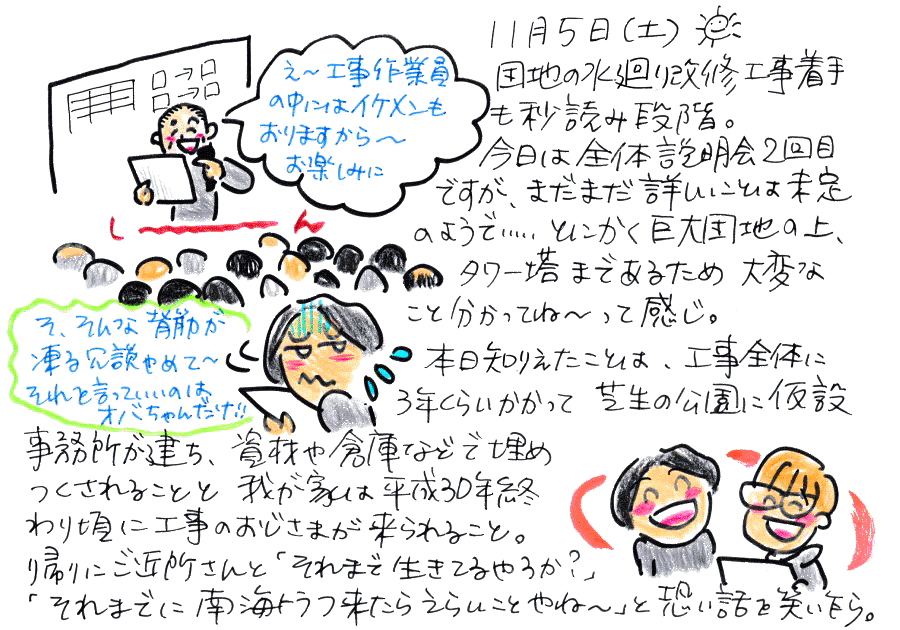 11月5日(土)
団地の水廻り改修工事着手
も秒読み段階。
今日は全体説明会2回目
ですが、まだまだ詳しいことは未定
のようで……とにかく巨大団地の上、
タワー塔まであるため大変な
こと分かってね〜って感じ。
本日知りえたことは、工事全体に
3年くらいかかって芝生の公園に仮設
事務所が建ち、資材や倉庫などで埋め
つくされることと我が家は平成30年終
わり頃に工事のおじさまが来られること。
帰りにご近所さんと「それまで生きてるやろか?」
「それまでに南海トラフ来たらえらいことやね〜」と恐い話を笑いながら。
え〜工事作業員
の中にはイケメンも
おりますから〜
お楽しみに
し ん
そ、そんな背筋が
凍る冗談やめて〜
それを言っていいのは
オバちゃんだけ!!